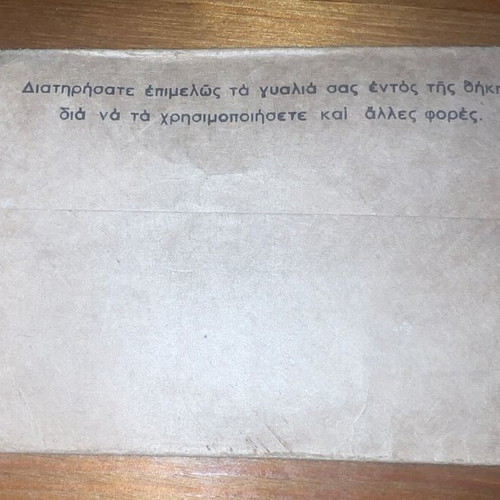 Διατηρήσατε ἐπιμελῶς τὰ γυαλιά σας ἐντὸς τῆς θήκη
διὰ νὰ τὰ χρησιμοποιήσετε καὶ ἄλλες φορές.